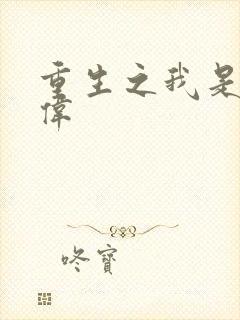 重生之我是
偉
咚寶